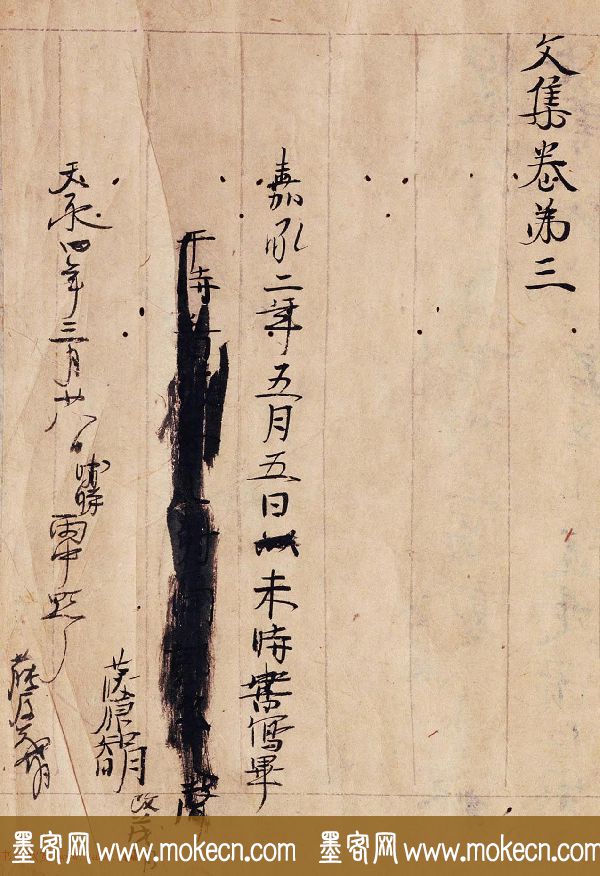 文集卷第三
嘉承二年五月五日未時書寫畢
于時
藤原知明
改茂明
天永四年三月廿八日晡時雨中點了
藤原茂明
墨客网 www.mokecn.com 墨客网 www.mokecn.com